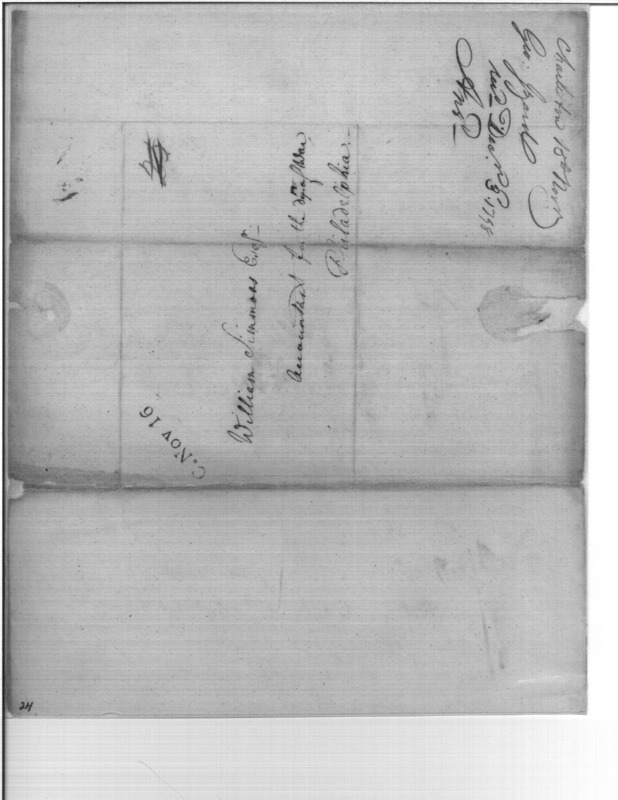 William Simmons Esqr.
Accountant for the Dpt. of War
Philadelphia
NOV 16
Charleston 15th Novr.
Recd Decr. 3 1798
Ansd
24